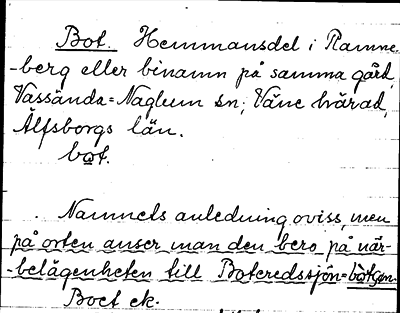 Bot. Hemmansdel i Ramne-
-berg eller binamn på samma gård,
Vassända=Naglum sn; Väne härad,
Älfsborgs län.
bot.
Namnets anledning oviss, men
på orten anser man den bero på när-
-belägenheten till Boteredssjön=
Boet ek.